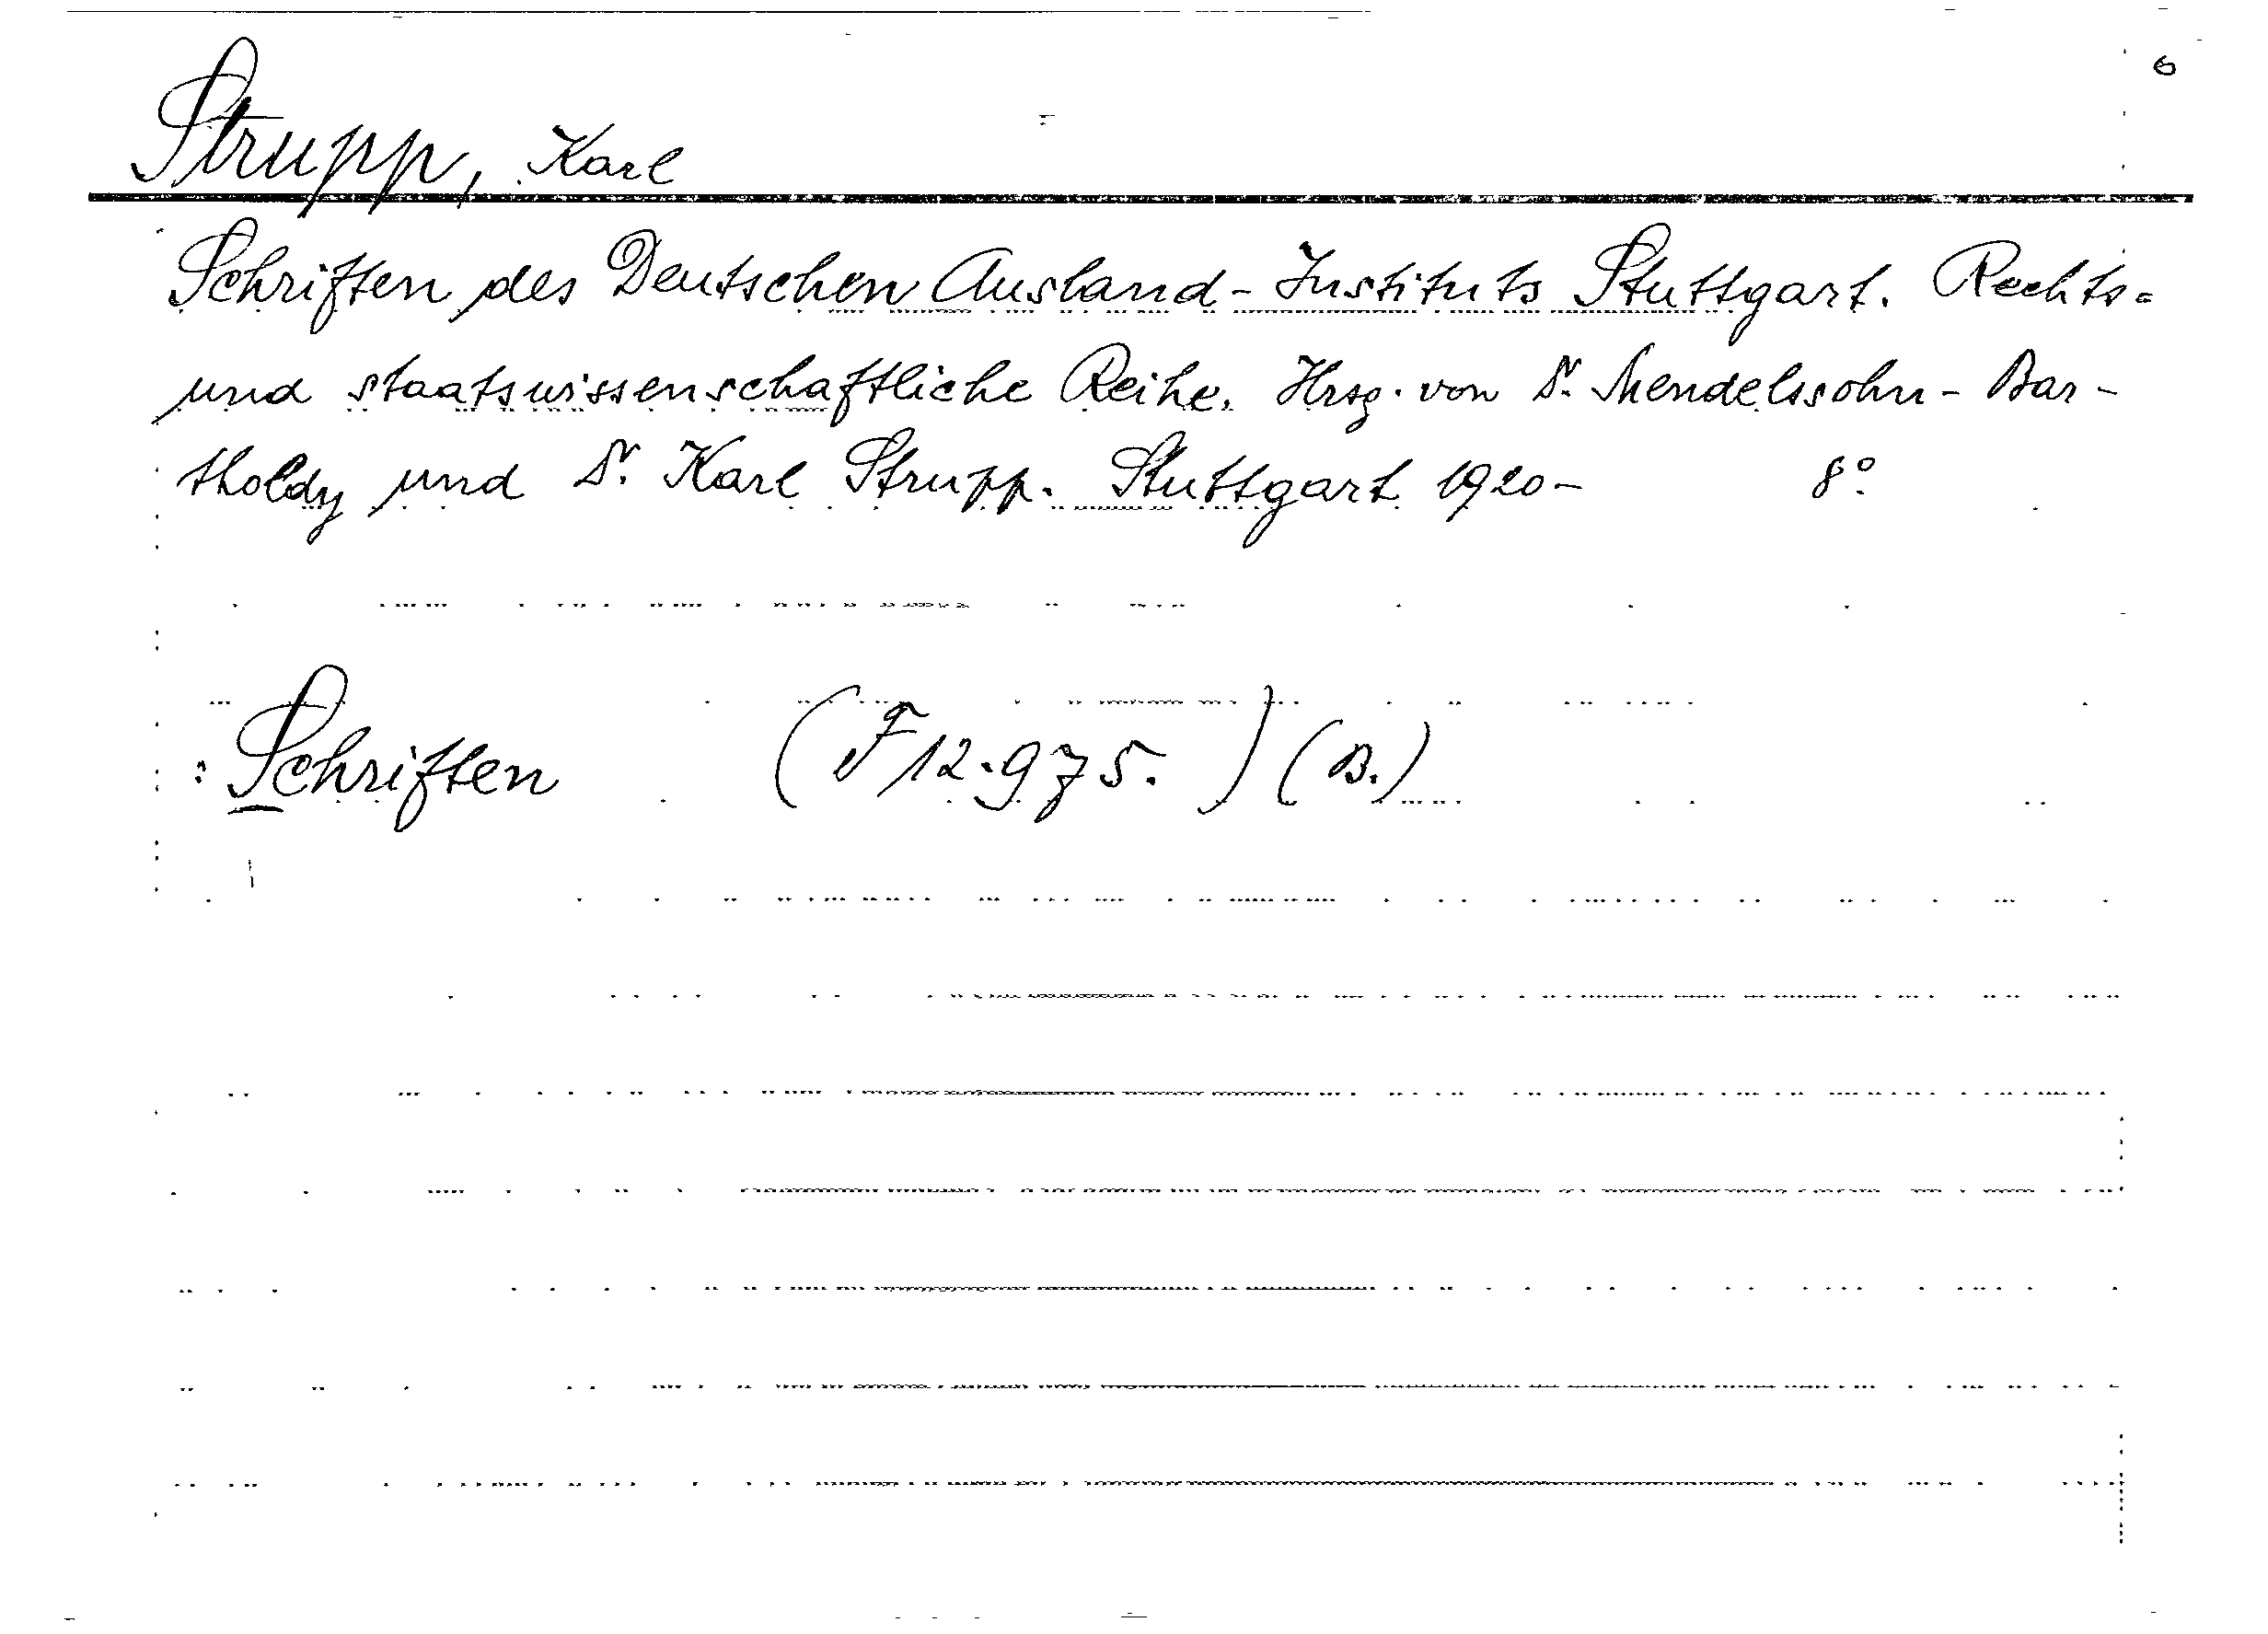 6
Strupp, Karl
Schriften des Deutschen Ausland-Instituts Stuttgart. Rechts=
und staatswissenschaftliche Reihe. Hrsg. von Dr. Mendelssohn-Bar-
tholdy und Dr. Karl Strupp. Stuttgart 1920- 8°
: Schriften (F 12.975.) (B.)